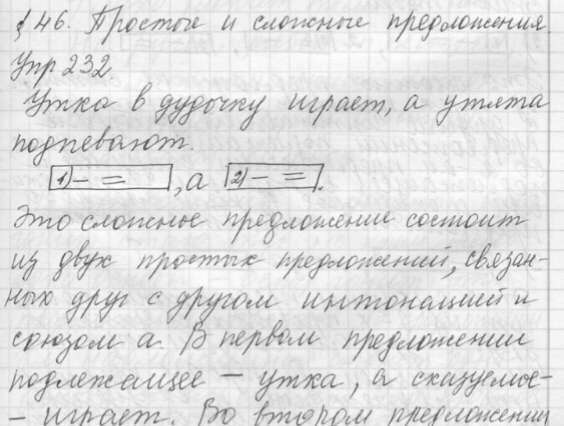 § 46. Простые и сложные предложения.
Упр 232.
Утка в дудочку играет, а утята
подпевают.
1) – = , а 2) – = .
Это сложное предложение состоит
из двух простых предложений, связан-
ных друг с другом интонацией и
союзом а. В первом предложении
подлежащее – утка, а сказуемое –
– играет. Во втором предложении